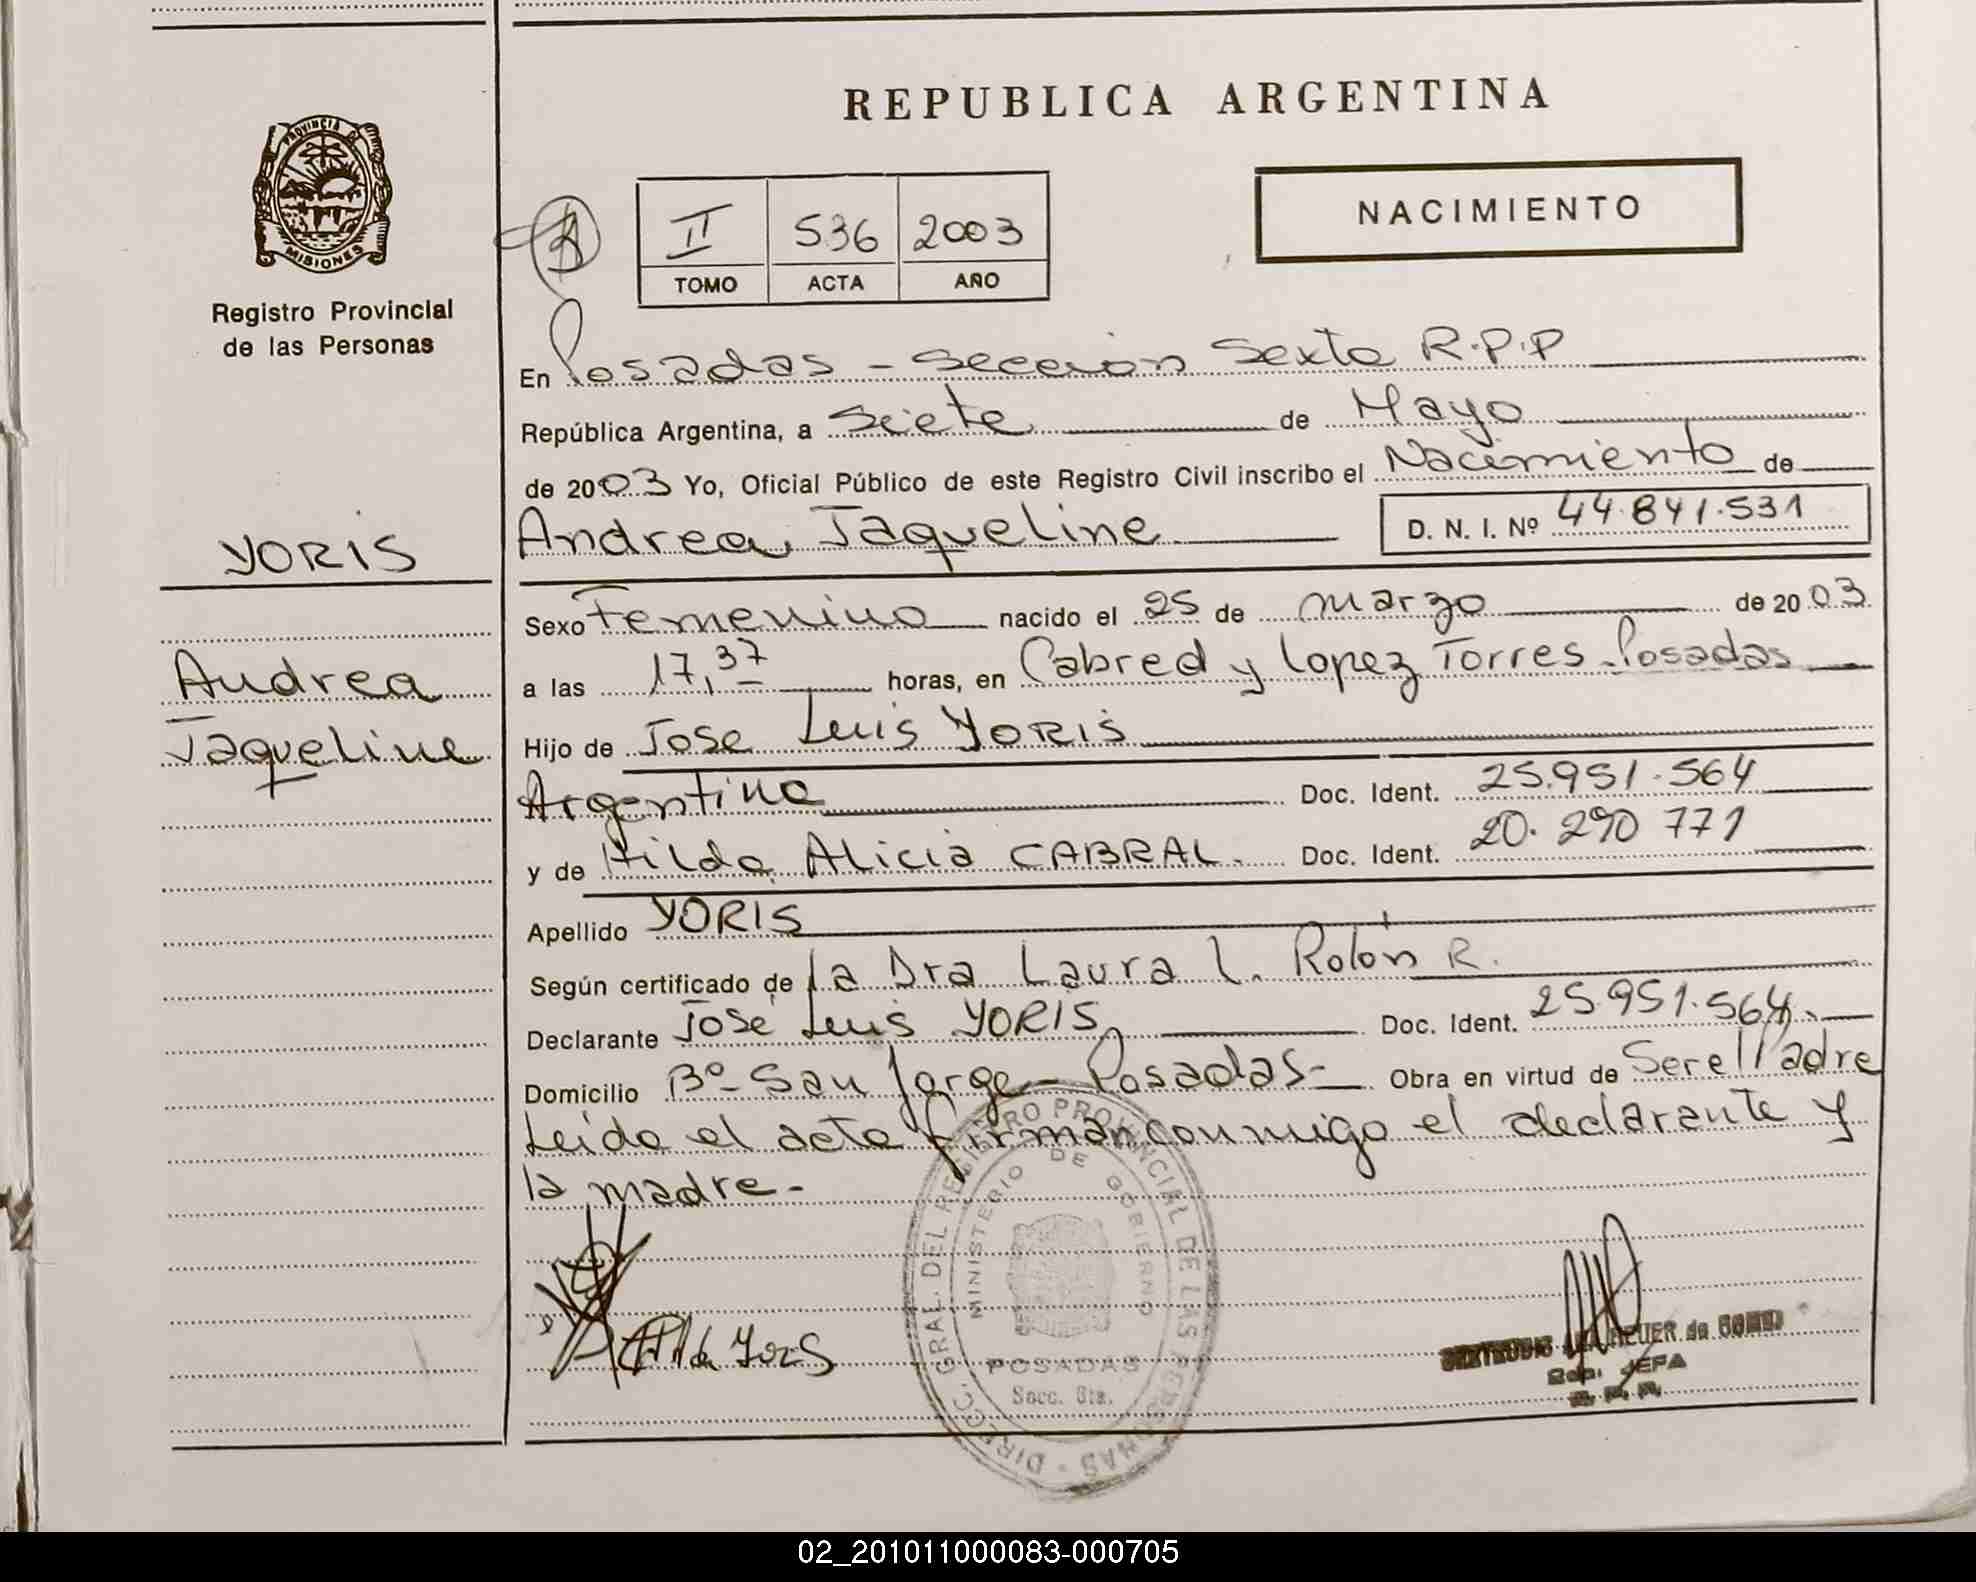 REPUBLICA ARGENTINA
PROVINCIA DE
MISIONES
Registro Provincial
de las Personas
II 536 2003
TOMO ACTA AÑO
NACIMIENTO
En Posadas - Sección Sexta R.P.P
República Argentina, a Siete de Mayo
de 2003 Yo, Oficial Público de este Registro Civil inscribo el Nacimiento de
Andrea Jaqueline D. N. I. Nº 44.841.531
YORIS
Andrea
Jaqueline
Sexo Femenino nacido el 25 de marzo de 2003
a las 17,37 horas, en Cabred y Lopez Torres - Posadas
Hijo de Jose Luis YORIS
Argentino Doc. Ident. 25.951.564
y de Hilda Alicia CABRAL. Doc. Ident. 20.290 771
Apellido YORIS
Según certificado de la Dra Laura L. Rolón R.
Declarante José Luis YORIS Doc. Ident. 25.951.564.
Domicilio Bº San Jorge - Posadas - Obra en virtud de Ser el Padre
Leida el acta firman conmigo el declarante y
la madre -
DIRECC. GRAL. DEL REGISTRO PROVINCIAL DE LAS PERSONAS
MINISTERIO DE GOBIERNO
POSADAS
Secc. 6ta.
Hilda Yoris
de
JEFA
02_201011000083-000705